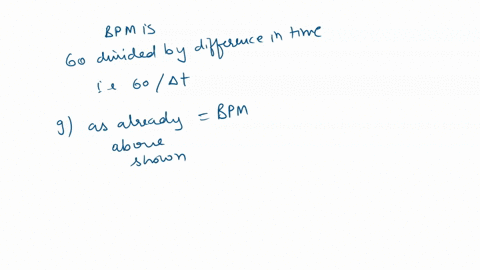 BPM is
60 divided by difference in time
i.e 60/Δt
g) as already = BPM
above
shown